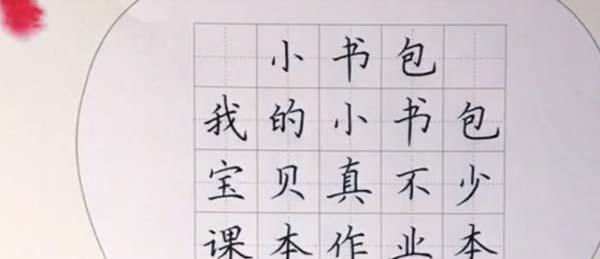 小书包
我的小书包
宝贝真不少
课本作业本